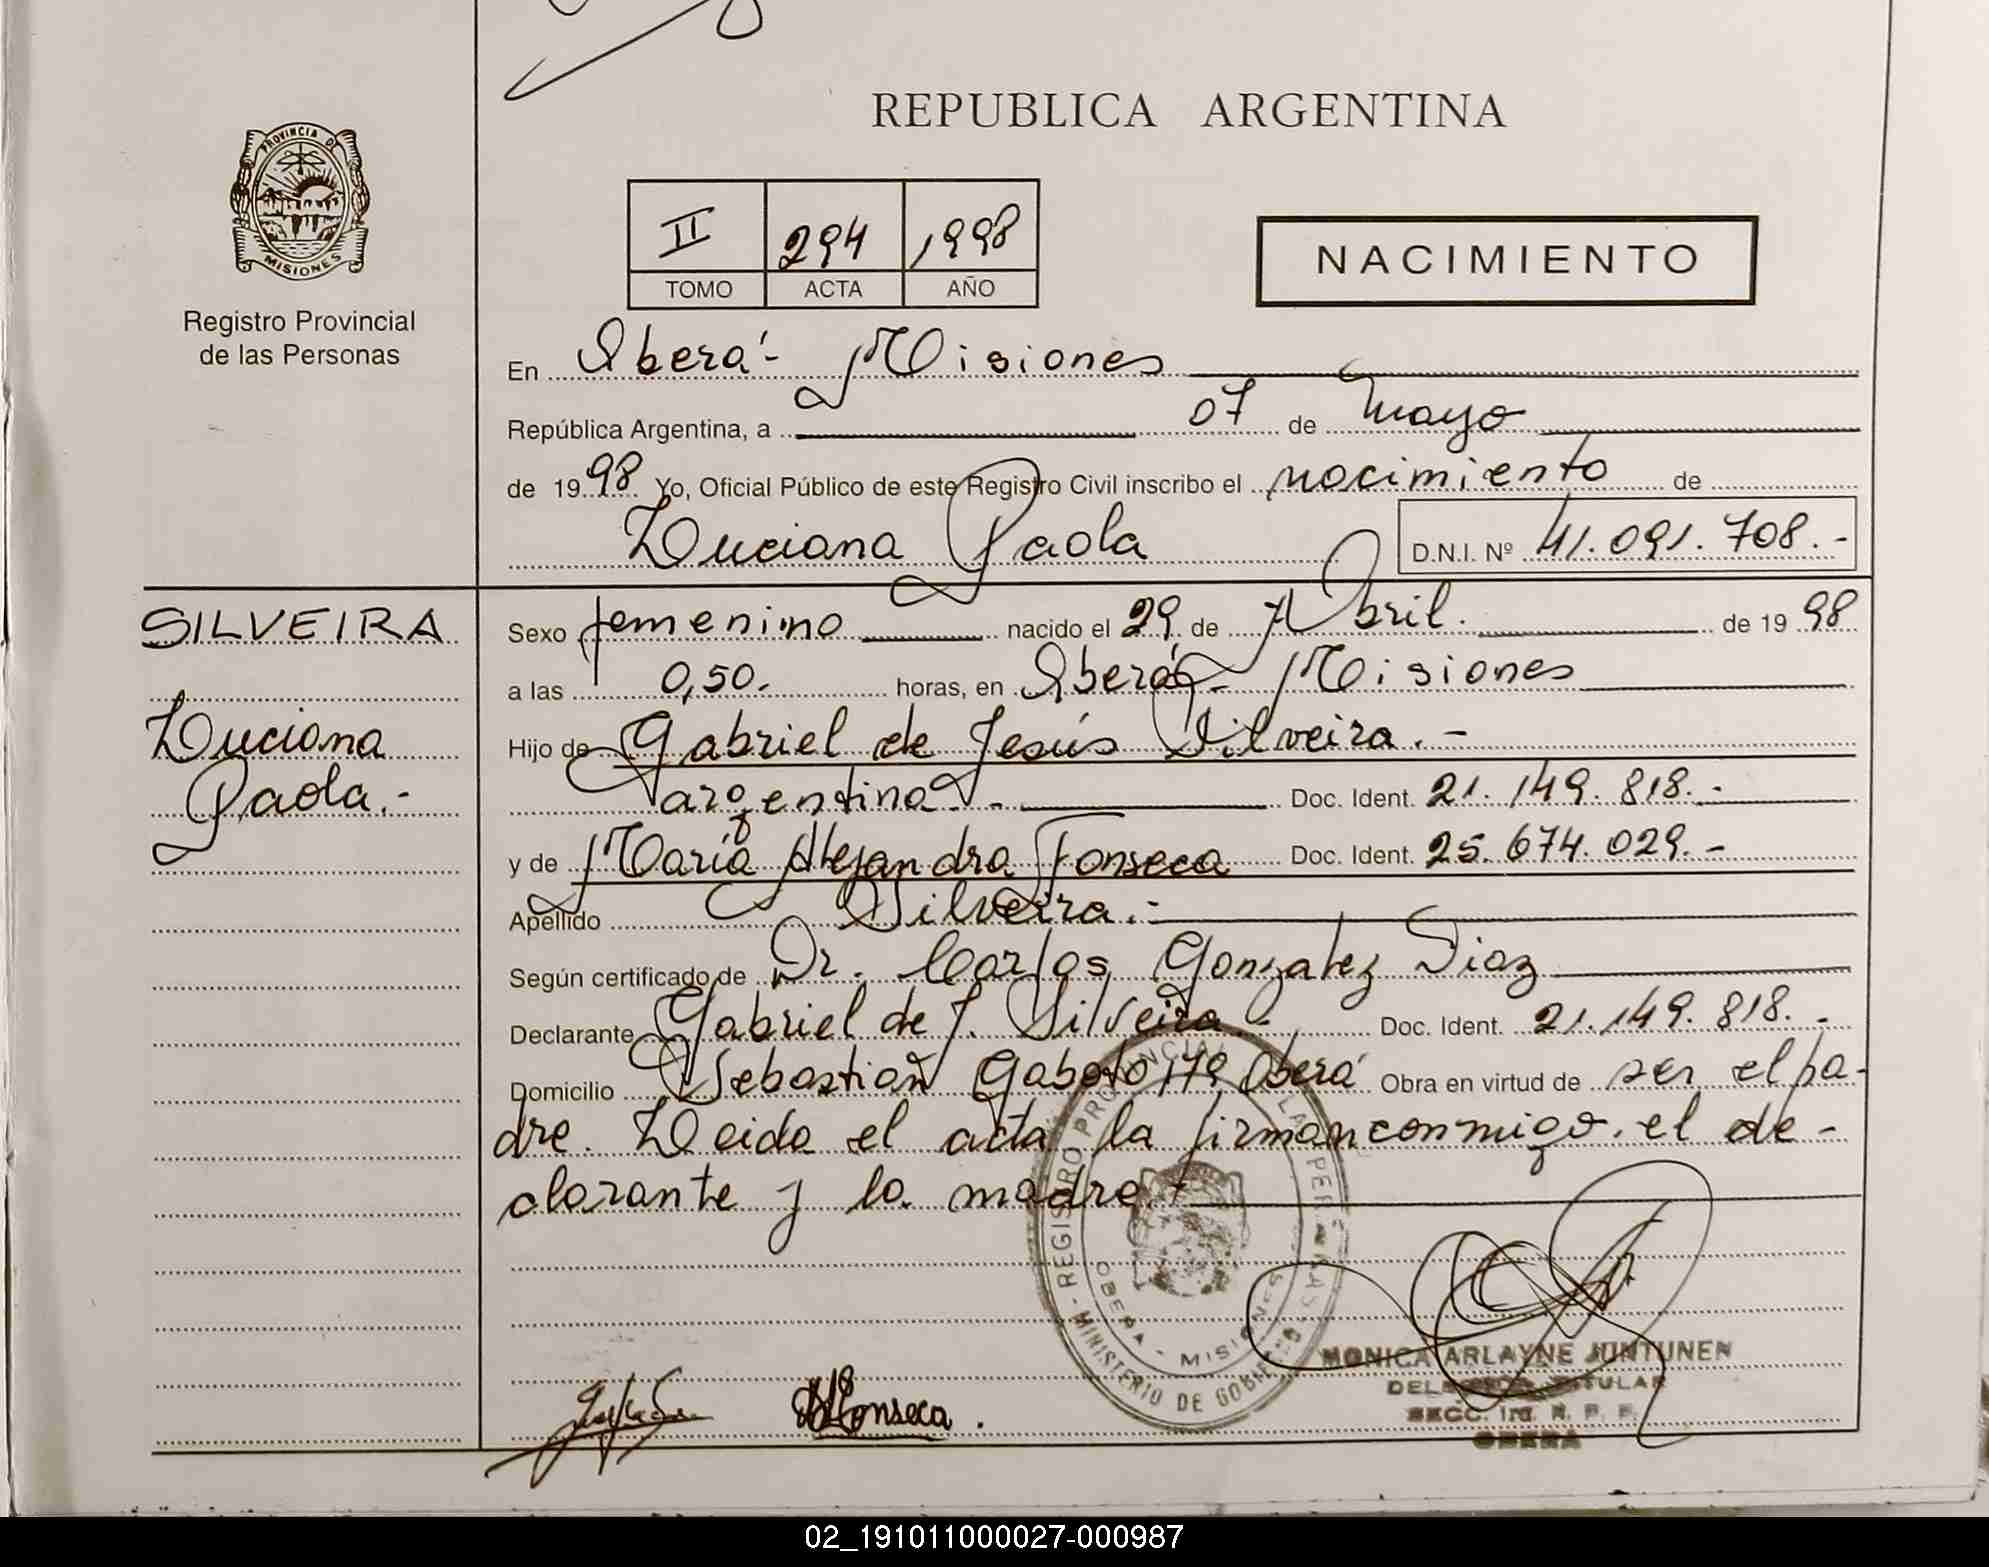 REPUBLICA ARGENTINA
PROVINCIA DE
MISIONES
Registro Provincial
de las Personas
II 294 1998
TOMO ACTA AÑO
NACIMIENTO
En Oberá - Misiones
República Argentina, a 07 de Mayo
de 1998 Yo, Oficial Público de este Registro Civil inscribo el nacimiento de
Luciana Paola D.N.I. Nº 41.091.708.-
SILVEIRA
Luciana
Paola.-
Sexo femenino nacido el 29 de Abril. de 1998
a las 0,50. horas, en Oberá - Misiones
Hijo de Gabriel de Jesús Silveira.-
argentino.- Doc. Ident. 21.149.818.-
y de María Alejandra Fonseca Doc. Ident. 25.674.029.-
Apellido Silveira.-
Según certificado de Dr. Carlos Gonzalez Diaz
Declarante Gabriel de J. Silveira.- Doc. Ident. 21.149.818.-
Domicilio Sebastian Gaboto 179 Oberá Obra en virtud de ser el pa-
dre. Leida el acta la firman conmigo, el de-
clarante y la madre.-
REGISTRO PROVINCIAL DE LAS PERSONAS
MINISTERIO DE GOBIERNO
OBERA - MISIONES
Fonseca.
MONICA ARLAYNE JUNTUNEN
DELEGADA TITULAR
SECC. 1ra. R. P. P.
OBERA
02_191011000027-000987